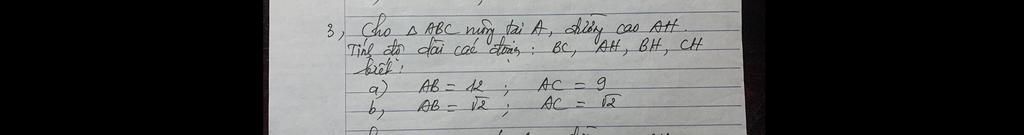 3, Cho △ ABC vuông tại A, đường cao AH.
Tính độ dài các đoạn : BC, AH, BH, CH
biết :
a) AB = 12 ; AC = 9
b, AB = √2 ; AC = √2